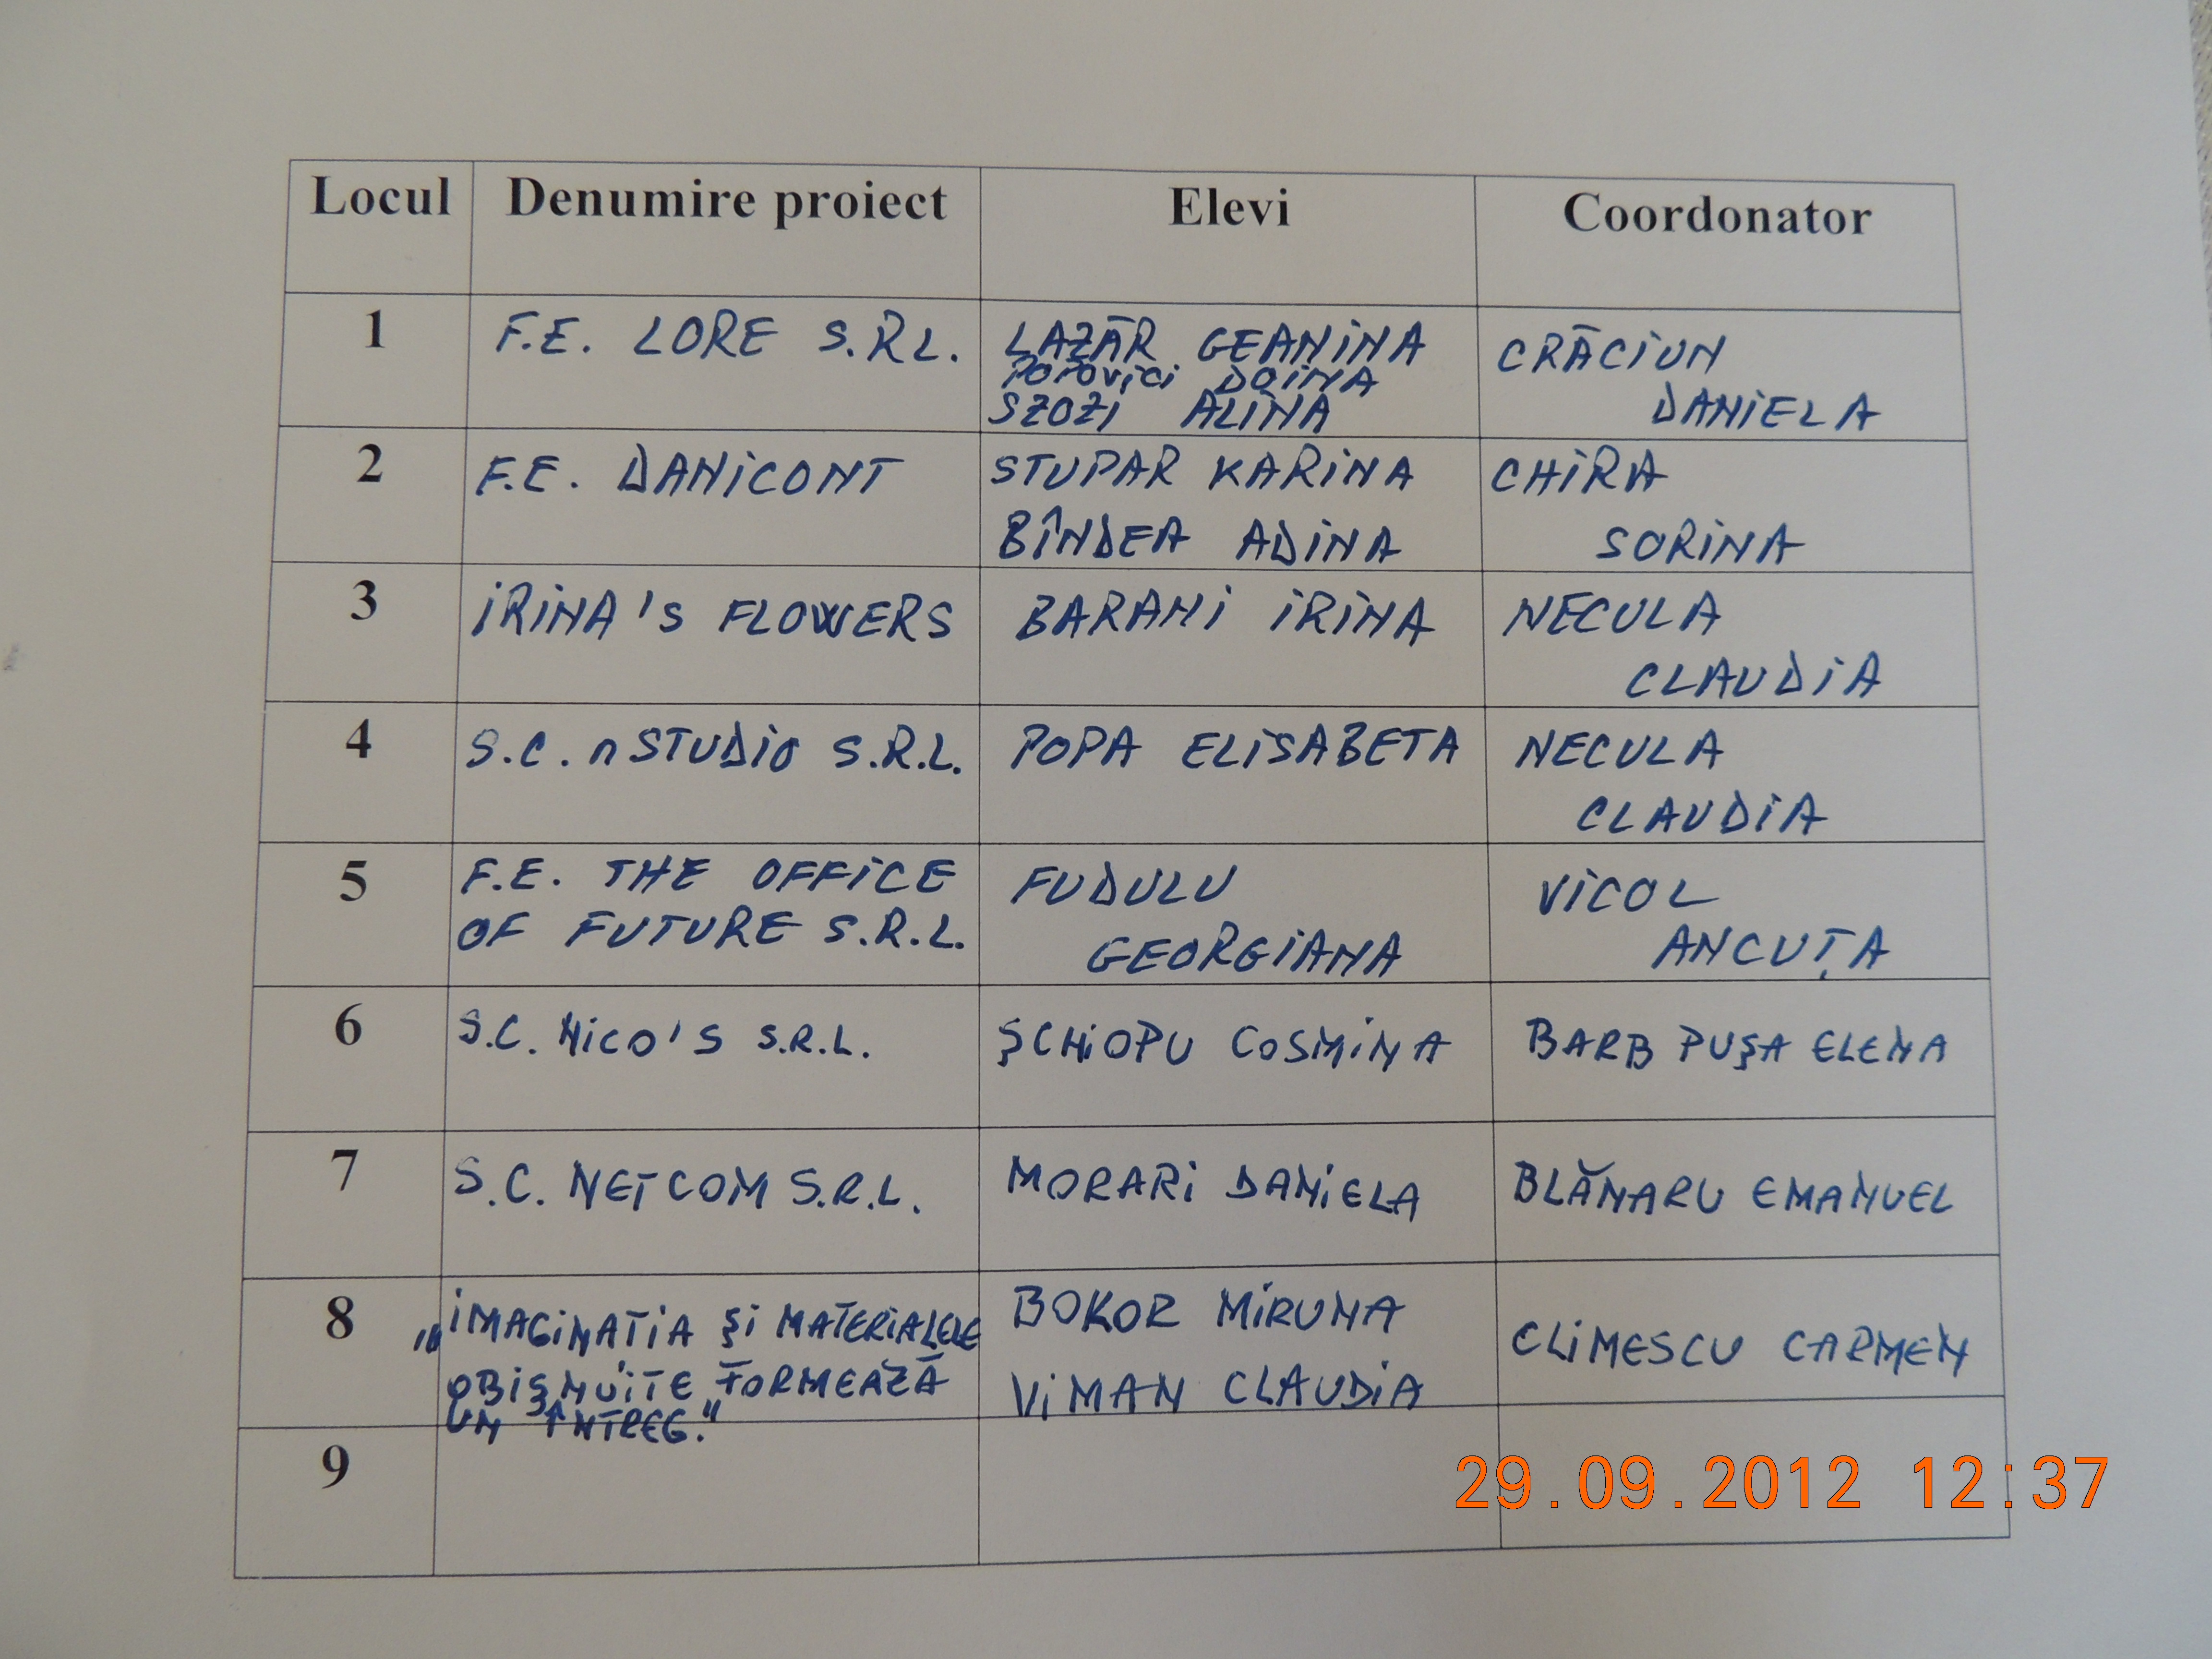 Locul Denumire proiect Elevi Coordonator
1 F.E. LORE S.R.L. LAZĂR GEANINA CRĂCIUN
POPOVICI DOINA
SZOZI ALINA DANIELA
2 F.E. DANICONT STUPAR KARINA CHIRA
BÎNDEA ADINA SORINA
3 IRINA'S FLOWERS BARANI IRINA NECULA
CLAUDIA
4 S.C. n STUDIO S.R.L. POPA ELISABETA NECULA
CLAUDIA
5 F.E. THE OFFICE FUDULU VICOL
OF FUTURE S.R.L. GEORGIANA ANCUȚA
6 S.C. NICO'S S.R.L. ŞCHIOPU COSMINA BARB PUŞA ELENA
7 S.C. NETCOM S.R.L. MORARI DANIELA BLĂNARU EMANUEL
8 „IMAGINATIA ŞI MATERIALELE BOKOR MIRUNA CLIMESCU CARMEN
OBIŞNUITE FORMEAZĂ VIMAN CLAUDIA
UN ÎNTREG."
9
29.09.2012 12:37